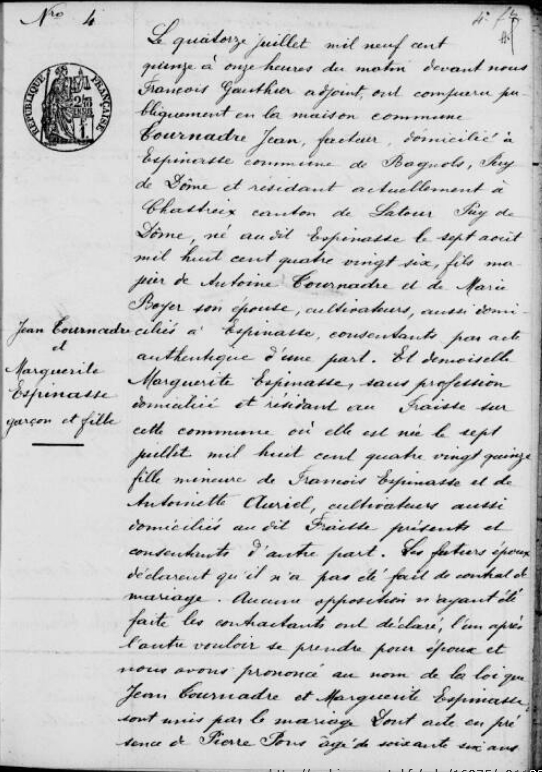 Nro 4
RÉPUBLIQUE FRANÇAISE
Le quatorze juillet mil neuf cent
quinze à onze heures du matin devant nous
François Gauthier adjoint, ont comparu pu-
bliquement en la maison commune
Tournadre Jean, facteur, domicilié à
Espinasse commune de Bagnols, Puy
de Dôme et résidant actuellement à
Chastreix canton de Latour Puy de
Dôme, né audit Espinasse le sept août
mil huit cent quatre vingt six, fils ma-
jeur de Antoine Tournadre et de Marie
Boyer son épouse, cultivateurs, aussi domi-
ciliés à Espinasse, consentants par acte
authentique d'une part. Et demoiselle
Marguerite Espinasse, sans profession
domiciliée et résidant au Fraisse sur
cette commune où elle est née le sept
juillet mil huit cent quatre vingt quinze
fille mineure de François Espinasse et de
Antoinette Auriel, cultivateurs aussi
domiciliés au dit Fraisse présents et
consentants d'autre part. Les futurs époux
déclarent qu'il n'a pas été fait de contrat de
mariage. Aucune opposition n'ayant été
faite les contractants ont déclaré, l'un après
l'autre vouloir se prendre pour époux et
nous avons prononcé au nom de la loi que
Jean Tournadre et Marguerite Espinasse,
sont unis par le mariage Dont acte en pré-
sence de Pierre Pons âgé de soixante six ans
Jean Tournadre
et
Marguerite
Espinasse
garçon et fille